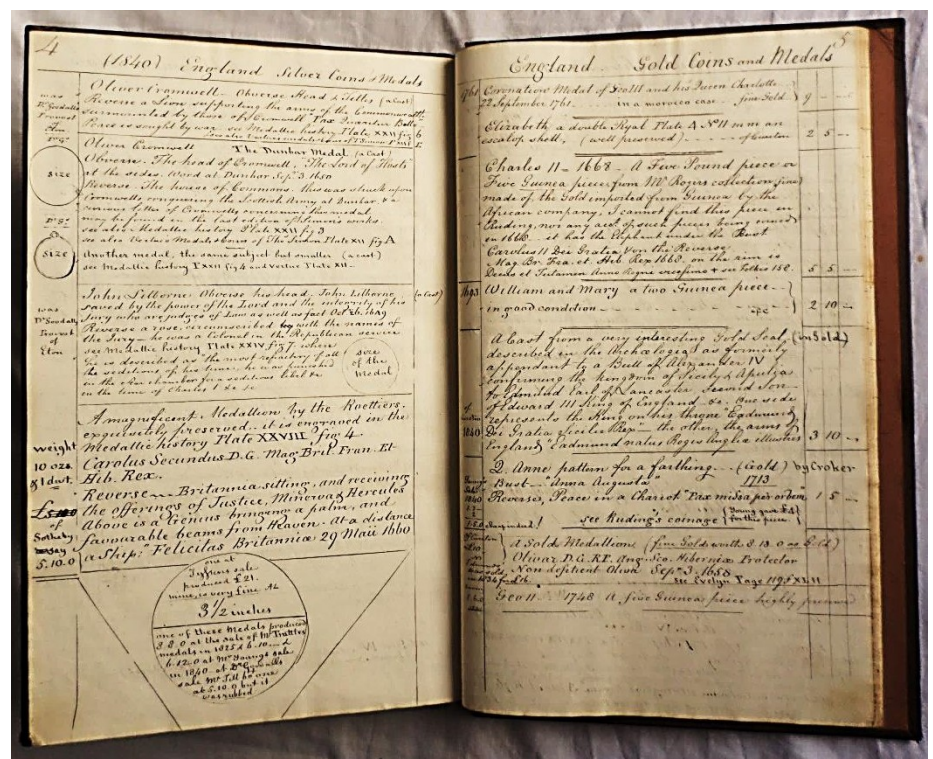 4
(1840) England Silver Coins & Medals
Oliver Cromwell - Obverse Head & Titles (a Cast)
Reverse a Lion supporting the arms of the Commonwealth
surmounted by those of Cromwell Pax Quaeritur Bello
Peace is sought by war see Medallic history Plate XXII fig 6
was
Dr Goodalls
Provost
of
Eton
Oliver Cromwell The Dunbar Medal (a Cast)
Obverse. The head of Cromwell, "The Lord of Hosts"
at the sides. Word at Dunbar Sepr 3. 1650
Reverse. The house of Commons. This was struck upon
Cromwells conquering the Scottish Army at Dunbar. & a
curious letter of Cromwells concerning this medal
may be found in the last edition of works.
see also Medallic history Plate XXII fig 3
see also Vertues Medals & Coins of Plate XII fig A
size
Another medal, the same subject but smaller (a cast)
see Medallic history P XXII fig 4 and Vertue Plate XII
size
John Lilborne Obverse his head. John Lilborne (a Cast)
saved by the power of the Lord and the integrity of his
Jury who are judges of Law as well as fact Oct 26. 1649
Reverse a rose, circumscribed by with the names of
the Jury - he was a Colonel in the Republican service
see Medallic history Plate XXIV fig 7. where
he is described as the most of all
the seditions of his time, he was punished
in the star chamber for a seditious libel &c
in the time of Charles 1
was
Dr Goodalls
Provost
of
Eton
size
of the
Medal
A magnificent Medallion by the Roettiers.
exquisitely preserved - it is engraved in the
Medallic history Plate XXVIII fig 4.
Carolus Secundus D.G. Mag Brit. Fran. Et.
Hib. Rex.
Reverse Britannia sitting, and receiving
the offerings of Justice, Minerva & Hercules
Above is a Genius bringing a palm, and
favourable beams from Heaven. At a distance
a Ship: Felicitas Britanniæ 29 Maii 1660
weight
10 ozs.
& 1 dwt.
of
Sotheby
5.10.0
one at
sale
produced £21.
mine is very fine At
3 1/2 inches
one of these Medals produced
8.8.0 at the sale of Mr Trattles
medals in 1825 & 6.10
6.12.0 at Mr Youngs sale
in 1840
sale Mr Till had one
at 5.10.0 but it
was rubbed
5
England Gold Coins and Medals
1761 Coronation Medal of Geo III and his Queen Charlotte
22 September 1761. in a morocco case fine Gold 9
Elizabeth a double Ryal Plate 4 No 11 m m an
escalop shell, (well preserved) 2 5
Charles II - 1668. A Five Pound piece or
Five Guinea piece, from Mr Rogers collection, fine
made of the Gold imported from Guinea by the
African company, I cannot find this piece in
Ruding, nor any acct of such pieces being coined
in 1668 - it has the Elephant under the Bust
Carolus II Dei Gratia & on the Reverse
Mag. Br. Fra. et. Hib. Rex 1668. on the rim is
Decus et Tutamen Anno Regni vicesimo & see Folkes 158 5 5
1693 William and Mary a two Guinea piece
in good condition 2 10
A Cast from a very interesting Gold Seal, (in Gold)
described in the Archologia as formerly
appendant to a Bull of Alexander IV
confirming the kingdom of Sicily & Apulia
to Edmund Earl of Lancaster second son
of Edward III King of England &c. One side
represents the King on his throne "Eadmund
Dei Gratia Sicilie Rex" - the other, the arms of
England "Eadmund natus Regis Anglie illustris 3 10
1840
Q. Anne pattern for a farthing (Gold) by Croker
Bust "Anna Augusta" 1713
Reverse, Peace in a Chariot "Pax missa per orbem" 1 5
see Ruding's coinage
Young gave £
for this piece
1840
a Gold Medallion (fine Gold worth 3.13.0 as Gold)
Olivar. D.G. R.P. Ang. Sco. Hibernia Protector
Non defitient Oliva Sepr 3. 1658
see Evelyn Page 119 & XLII
Geo II 1748 A five Guinea piece highly preserved